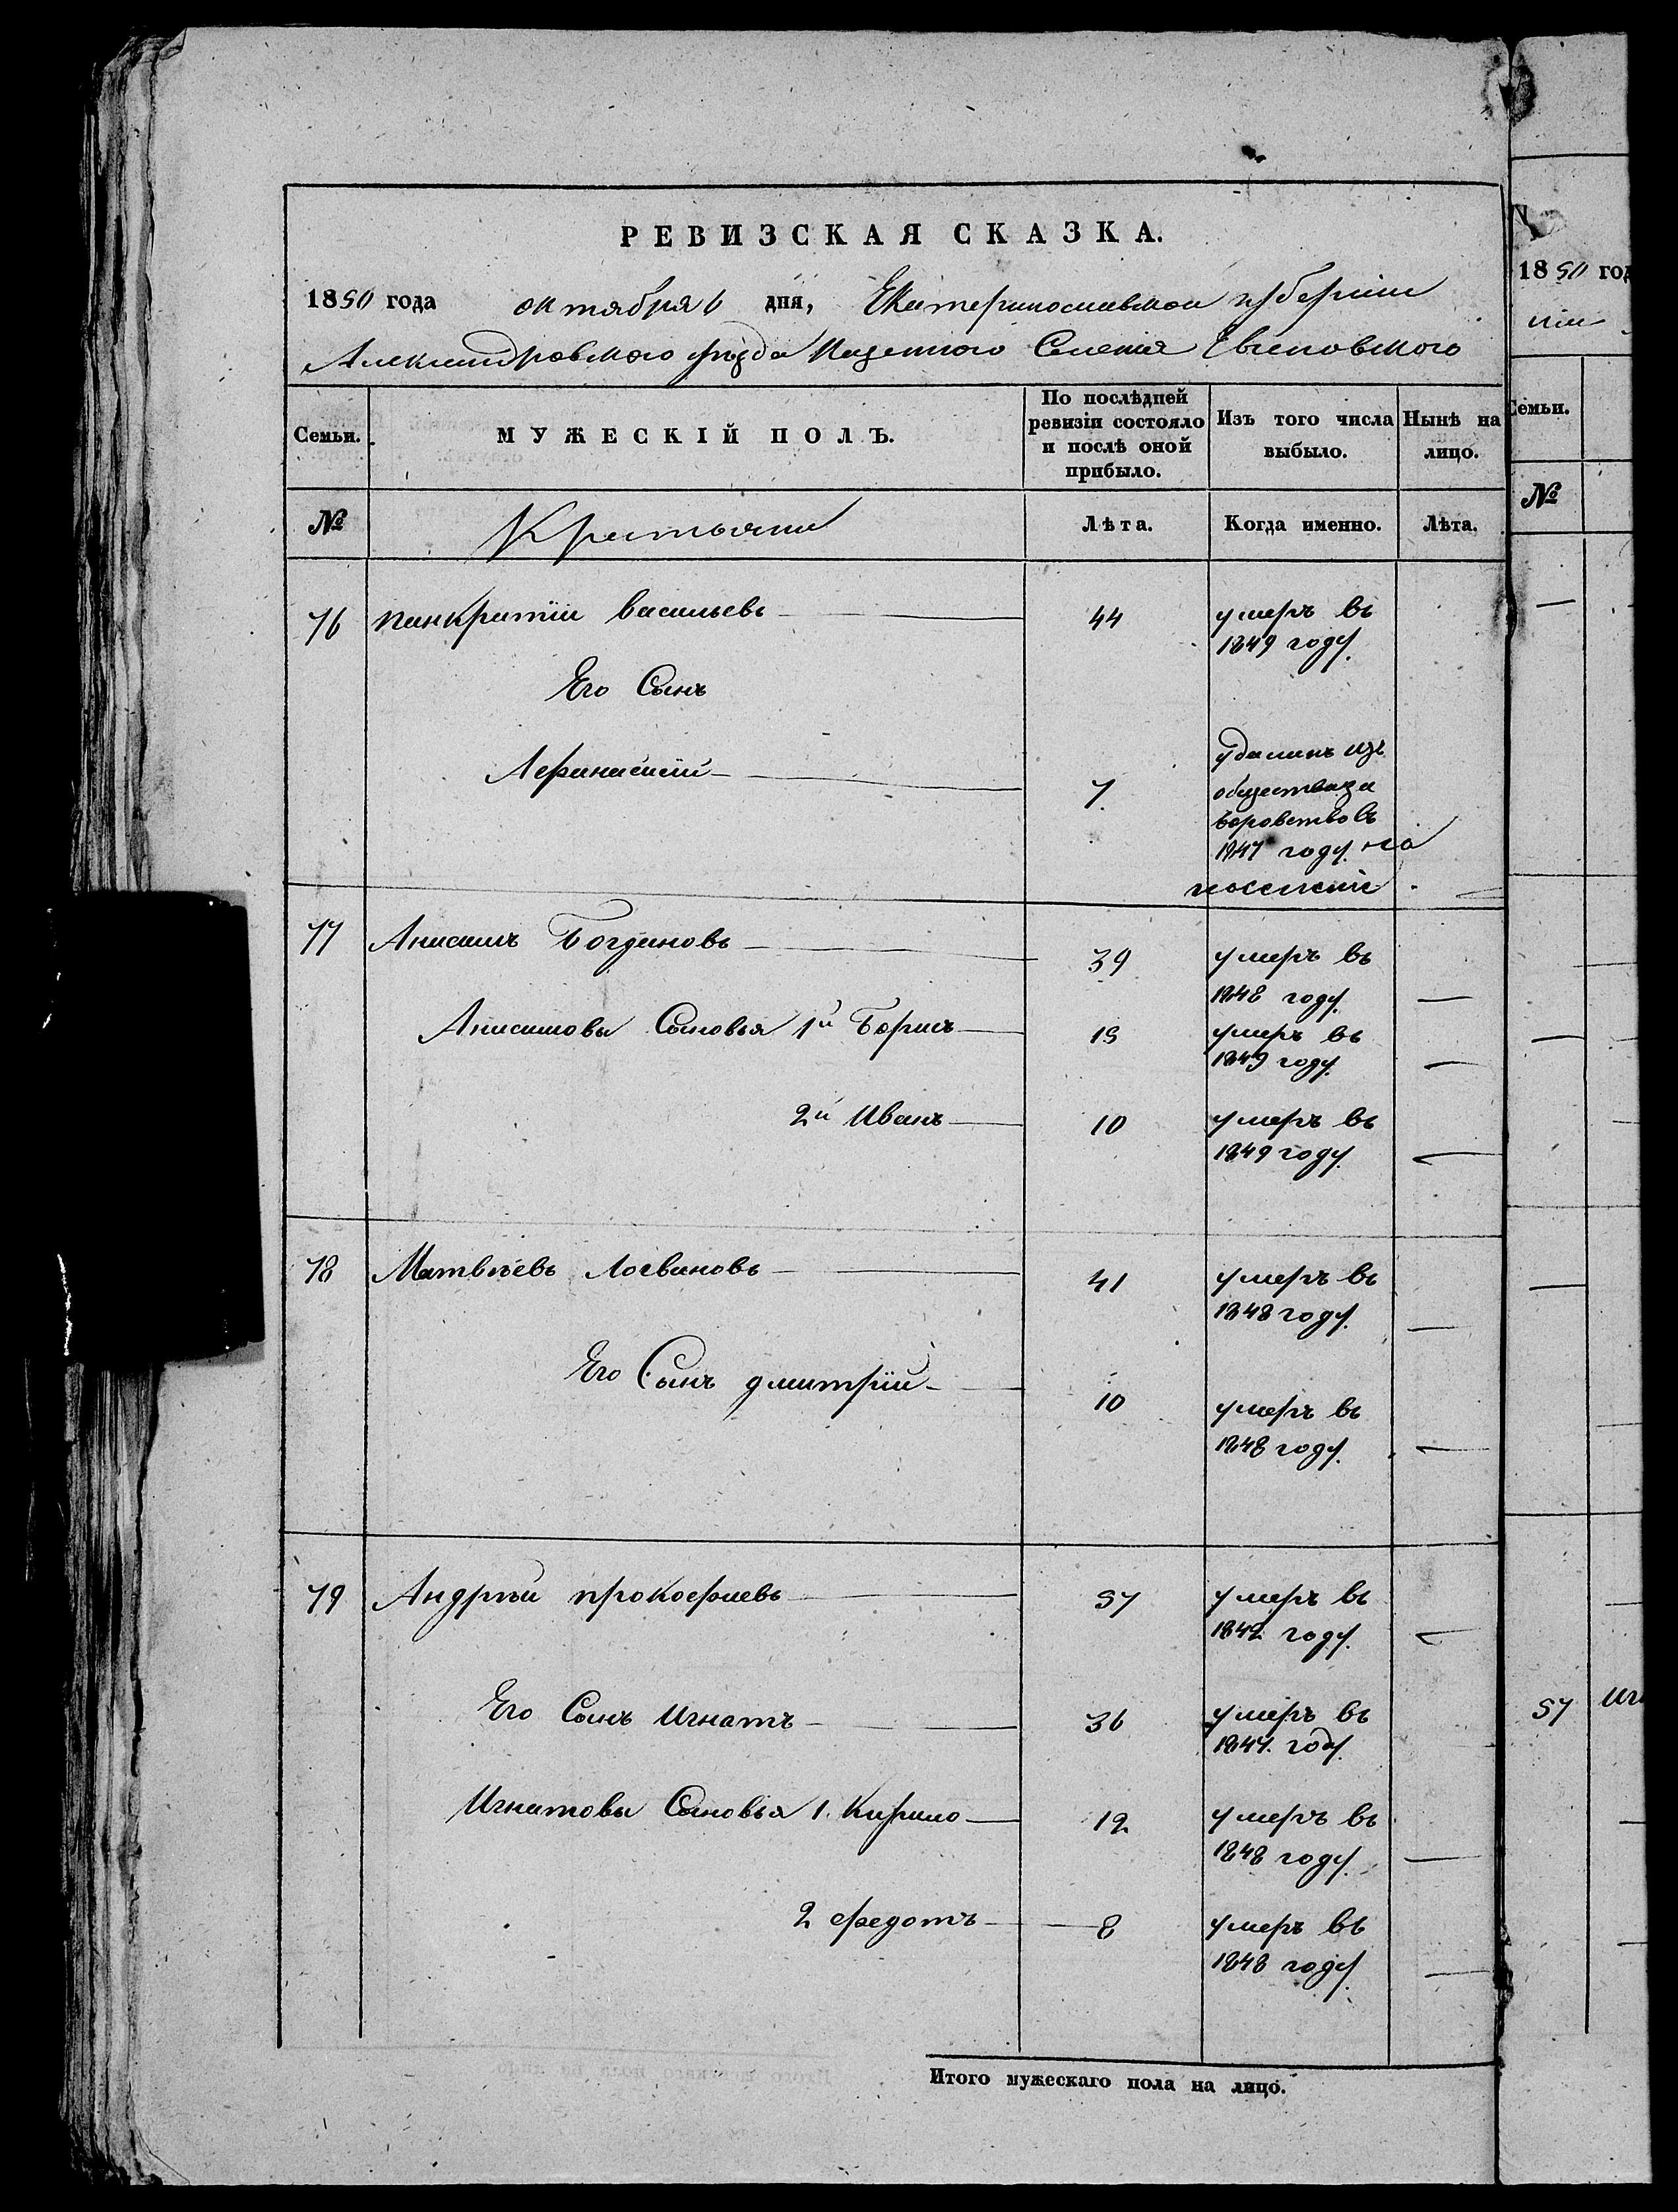 РЕВИЗСКАЯ СКАЗКА.
1850 года октября 6 дня, Екатеринославской губернии
Александровского уѣзда Казенного Селения
Семьи.
МУЖЕСКІЙ ПОЛЪ.
По послѣдней ревизіи состояло и послѣ оной прибыло.
Изъ того числа выбыло.
Нынѣ на лицо.
№
Крестьяни
Лѣта.
Когда именно.
Лѣта.
76 панкратіи васильевъ 44 умеръ въ
1849 году.
Его Сынъ
Афанасіи 7. удаленъ изъ
общества за
воровство въ
1847 году на
поселеніе.
77 Анисимъ Богдановъ 39 умеръ въ
1848 году.
Анисимовы Сыновья 1й Борисъ 15 умеръ въ
1849 году.
2й Иванъ 10 умеръ въ
1849 году.
78 Матвѣевъ Логвиновъ 41 умеръ въ
1848 году.
Его Сынъ дмитрій 10 умеръ въ
1848 году.
79 Андрѣи прокофиевъ 57 умеръ въ
1842 году.
Его Сынъ Игнатъ 36 умеръ въ
1847. году.
Игнатовы Сыновья 1. Кирило 12 умеръ въ
1848 году.
2 федотъ 8 умеръ въ
1848 году
Итого мужескаго пола на лицо.
1850 год
ніи
Семьи.
№
57